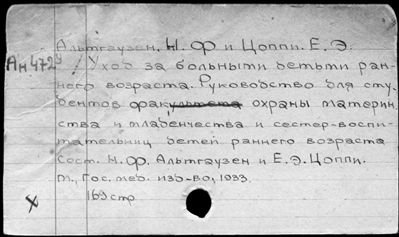 Альтгаузен, Н. Ф и Цоппи. Е. Э.
Ан472⁹ / Уход за больными детьми ран-
него возраста. Руководство для сту-
дентов факультета охраны материн.
ства и младенчества и сестер-воспи-
тательниц детей раннего возраста
Сост. Н. Ф. Альтгаузен и Е. Э. Цоппи.
М., Гос. мед. изд-во, 1933.
169 стр
X